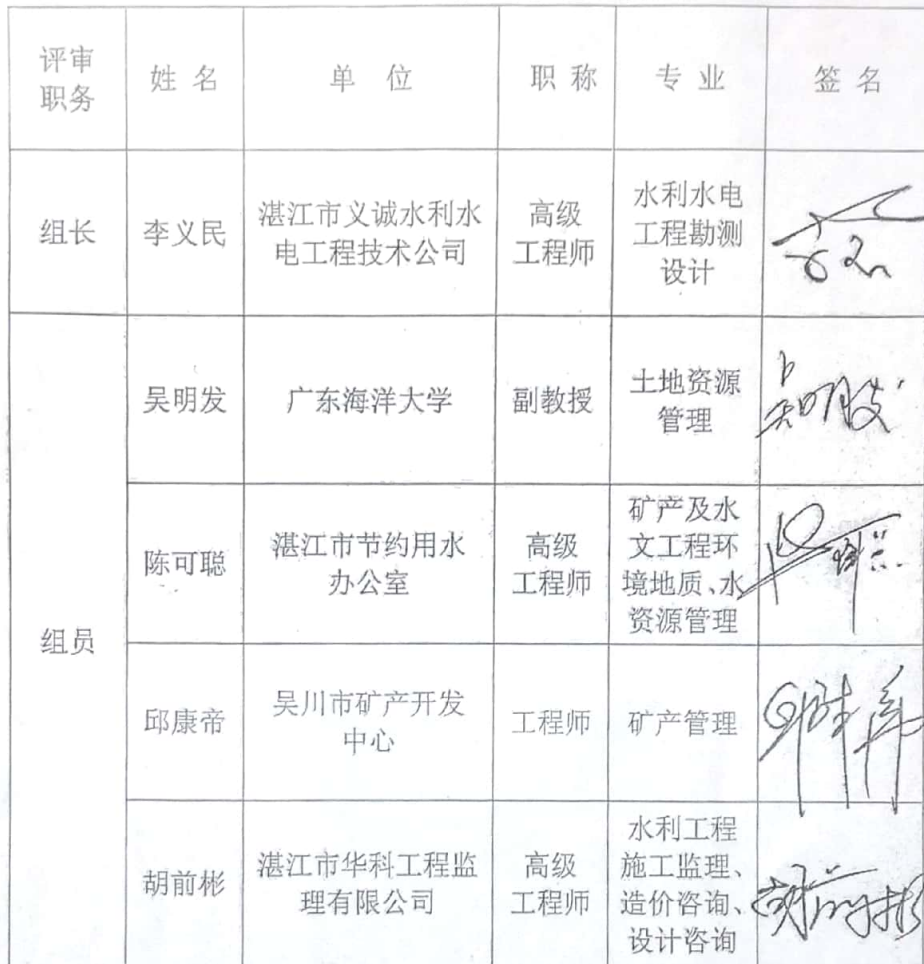 评审
职务
姓名
单位
职称
专业
签名
组长
李义民
湛江市义诚水利水
电工程技术公司
高级
工程师
水利水电
工程勘测
设计
组员
吴明发
广东海洋大学
副教授
土地资源
管理
吴明发
陈可聪
湛江市节约用水
办公室
高级
工程师
矿产及水
文工程环
境地质、水
资源管理
邱康帝
吴川市矿产开发
中心
工程师
矿产管理
胡前彬
湛江市华科工程监
理有限公司
高级
工程师
水利工程
施工监理、
造价咨询、
设计咨询
胡前彬